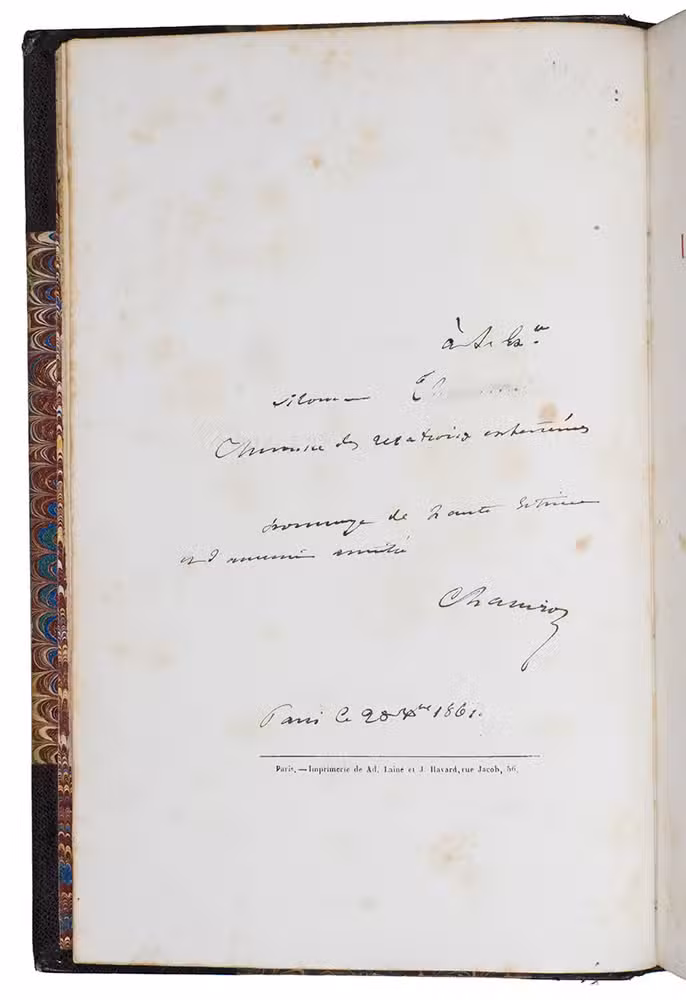 à S. Ex.ce
Monsieur
Ministre des relations extérieures
hommage de haute estime
et d'ancienne amitié
Paris le 20 Xbre 1861.
Paris, — Imprimerie de Ad. Lainé et J. Havard, rue Jacob, 56.